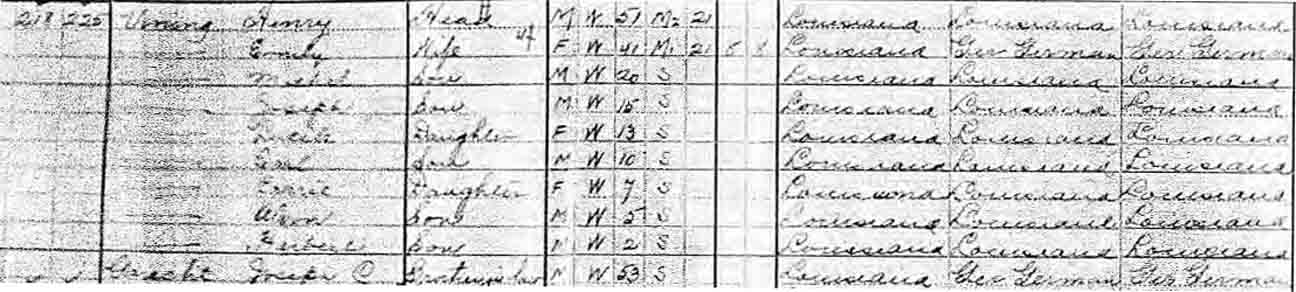 218 225 Henry Head M W 51 M2 21 Louisiana Louisiana Louisiana
Emily Wife F W 41 M1 21 8 8 Louisiana Ger German Ger German
Son M W 20 S Louisiana Louisiana Louisiana
Joseph Son M W 15 S Louisiana Louisiana Louisiana
Daughter F W 13 S Louisiana Louisiana Louisiana
Son M W 10 S Louisiana Louisiana Louisiana
Daughter F W 7 S Louisiana Louisiana Louisiana
Son M W 5 S Louisiana Louisiana Louisiana
Son M W 2 S Louisiana Louisiana Louisiana
Joseph C M W 53 S Louisiana Ger German Ger German